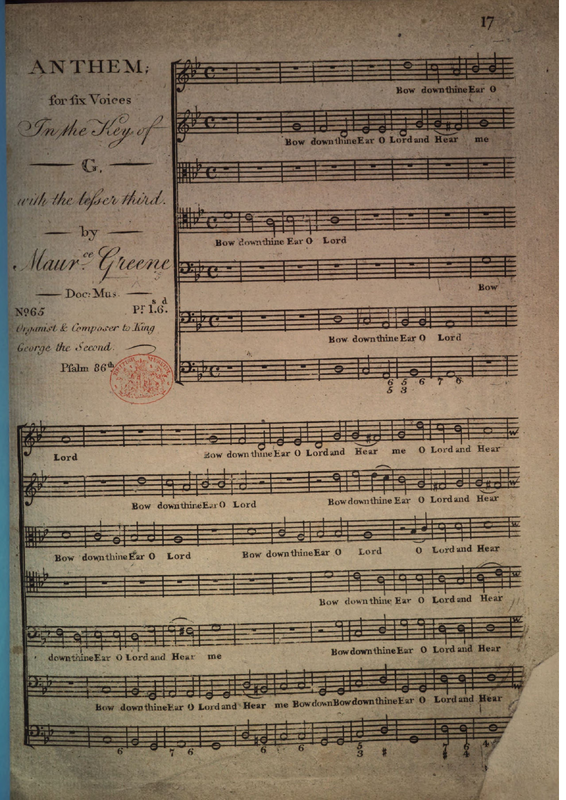 17
ANTHEM;
for six Voices
In the Key of
G,
with the lesser third.
by
Maur.ce Greene
Doc: Mus.
No 65 Pr 1s.6d.
Organist & Composer to King
George the Second.
Psalm 86th
Bow down thine Ear O
Bow down thine Ear O Lord and Hear me
Bow down thine Ear O Lord
Bow
Bow down thine Ear O Lord
6 5 6 7 6
5 3
Lord Bow down thine Ear O Lord and Hear me O Lord and Hear
Bow down thine Ear O Lord Bow down thine Ear O Lord and Hear
Bow down thine Ear O Lord Bow down thine Ear O Lord O Lord and Hear
Bow down thine Ear O Lord and Hear
down thine Ear O Lord and Hear me Bow down thine Ear O Lord and Hear
Bow down thine Ear O Lord and Hear me Bow down Bow down thine Ear O Lord and Hear
6 7 6 6 6 5 # 7 6 4
3